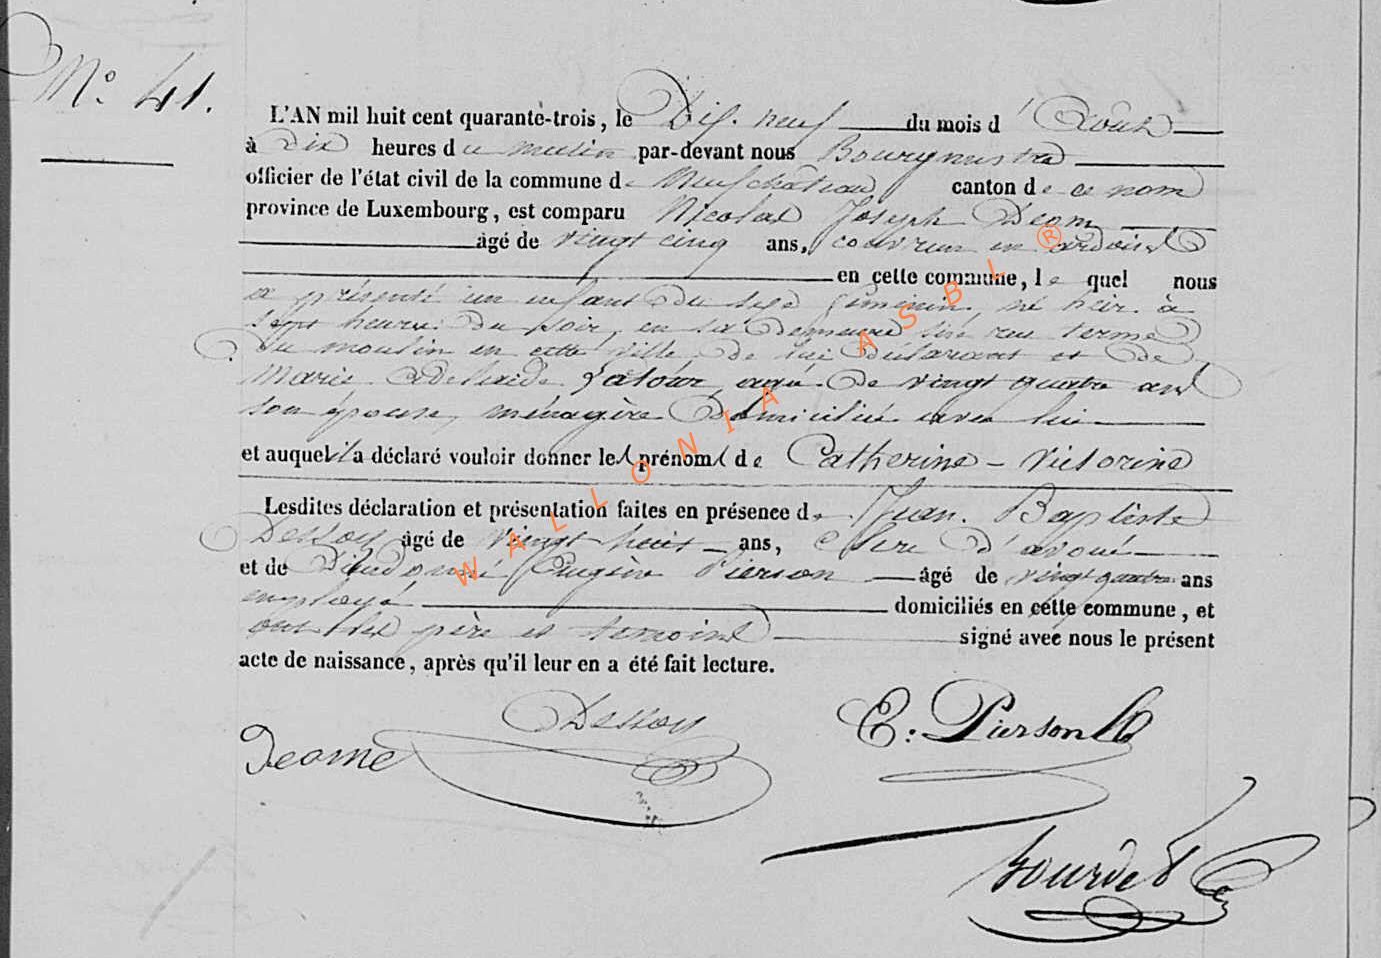 N° 41.
L'AN mil huit cent quarante-trois, le Dix-neuf du mois d'Août
à Dix heures du matin par-devant nous Bourgmestre
officier de l'état civil de la commune de Neufchâteau canton de ce nom
province de Luxembourg, est comparu Nicolas Joseph Deom
âgé de vingt cinq ans, couvreur en ardoises
en cette commune, le quel nous
a présenté un enfant du sexe féminin, né hier à
sept heures du soir, en sa demeure sise
du moulin en cette ville, de lui déclarant et de
Marie Adelaide Latour, agée de vingt quatre ans
son épouse, ménagère Domiciliée avec lui
et auquel il a déclaré vouloir donner les prénoms de Catherine - Victorine
Lesdites déclaration et présentation faites en présence de Jean Baptiste
Dessoy âgé de vingt huit ans, Clerc d'avoué
et de Dieudonné Eugène Pierson âgé de vingt quatre ans
employé domiciliés en cette commune, et
ont les père et temoins signé avec nous le présent
acte de naissance, après qu'il leur en a été fait lecture.
Dessoy
E. Pierson
Deome
WALLONIA ASBL ®